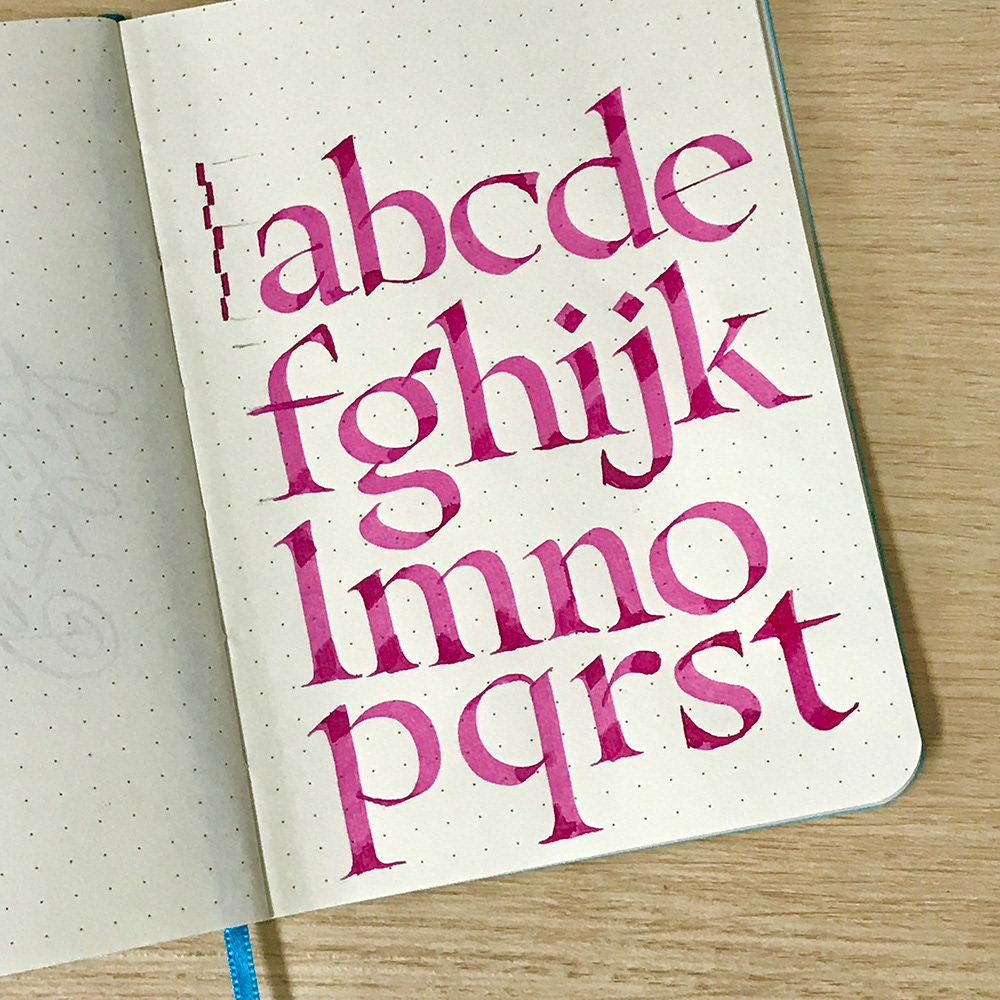 abcde
fghijk
lmno
pqrst